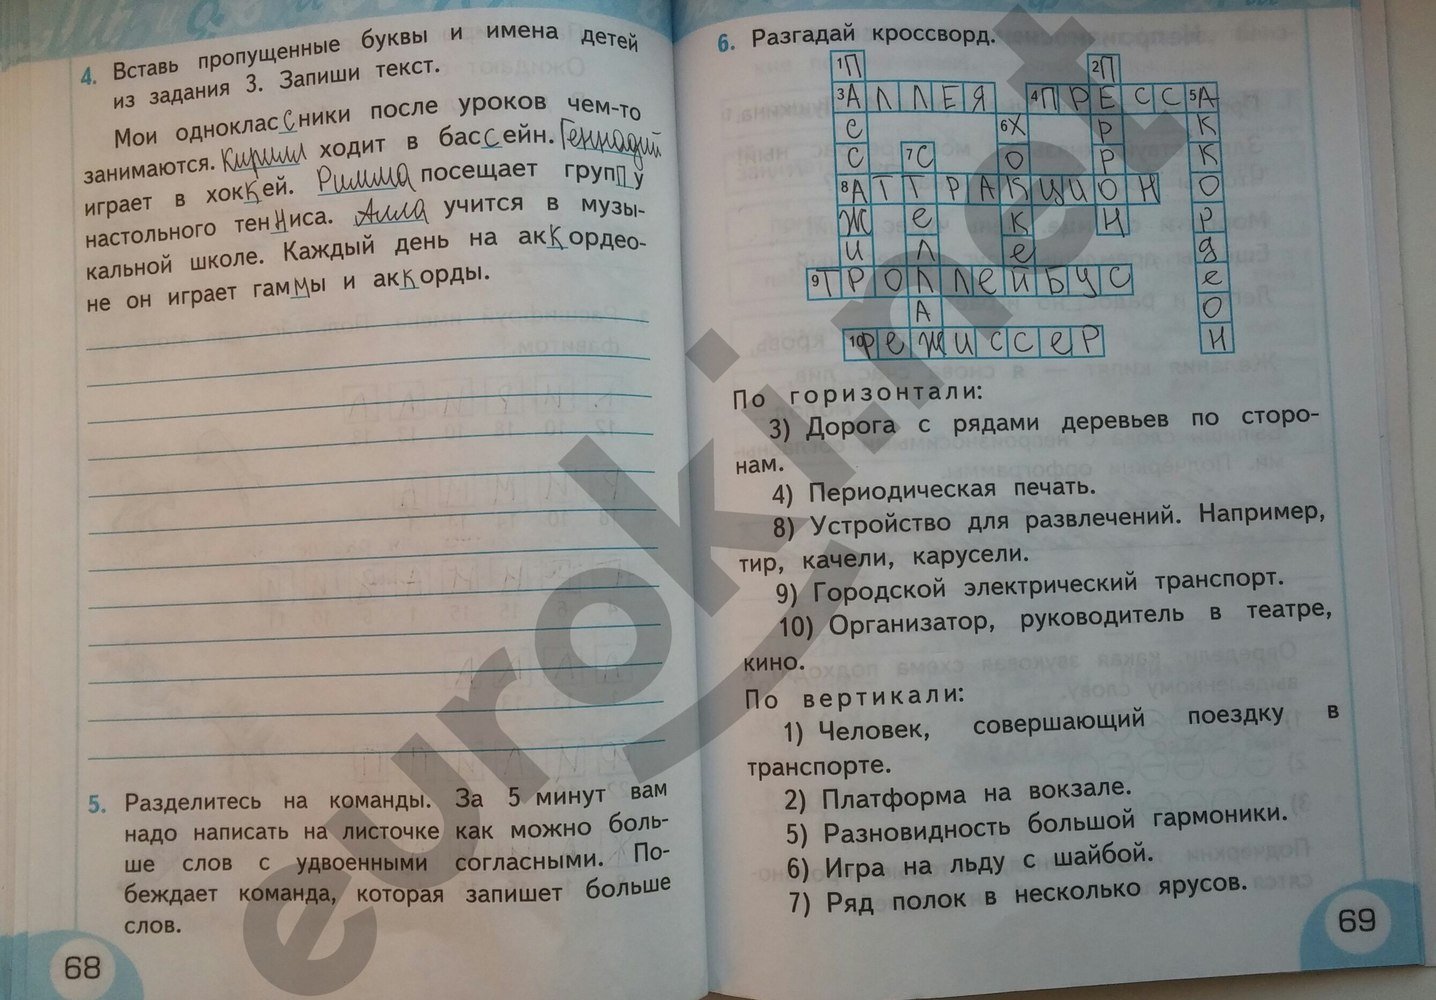 4. Вставь пропущенные буквы и имена детей
из задания 3. Запиши текст.
Мои одноклассники после уроков чем-то
занимаются. Кирилл ходит в бассейн. Геннадий
играет в хоккей. Римма посещает группу
настольного тенниса. Алла учится в музы-
кальной школе. Каждый день на аккордео-
не он играет гаммы и аккорды.
5. Разделитесь на команды. За 5 минут вам
надо написать на листочке как можно боль-
ше слов с удвоенными согласными. По-
беждает команда, которая запишет больше
слов.
68
6. Разгадай кроссворд.
1 ПАССАЖИР
2 ПЕРРОН
3 АЛЛЕЯ
4 ПРЕСС
5 АККОРДЕОН
6 ХОККЕЙ
7 СТЕЛЛАЖ
8 АТТРАКЦИОН
9 ТРОЛЛЕЙБУС
10 РЕЖИССЕР
По горизонтали:
3) Дорога с рядами деревьев по сторо-
нам.
4) Периодическая печать.
8) Устройство для развлечений. Например,
тир, качели, карусели.
9) Городской электрический транспорт.
10) Организатор, руководитель в театре,
кино.
По вертикали:
1) Человек, совершающий поездку в
транспорте.
2) Платформа на вокзале.
5) Разновидность большой гармоники.
6) Игра на льду с шайбой.
7) Ряд полок в несколько ярусов.
69
euroki.net